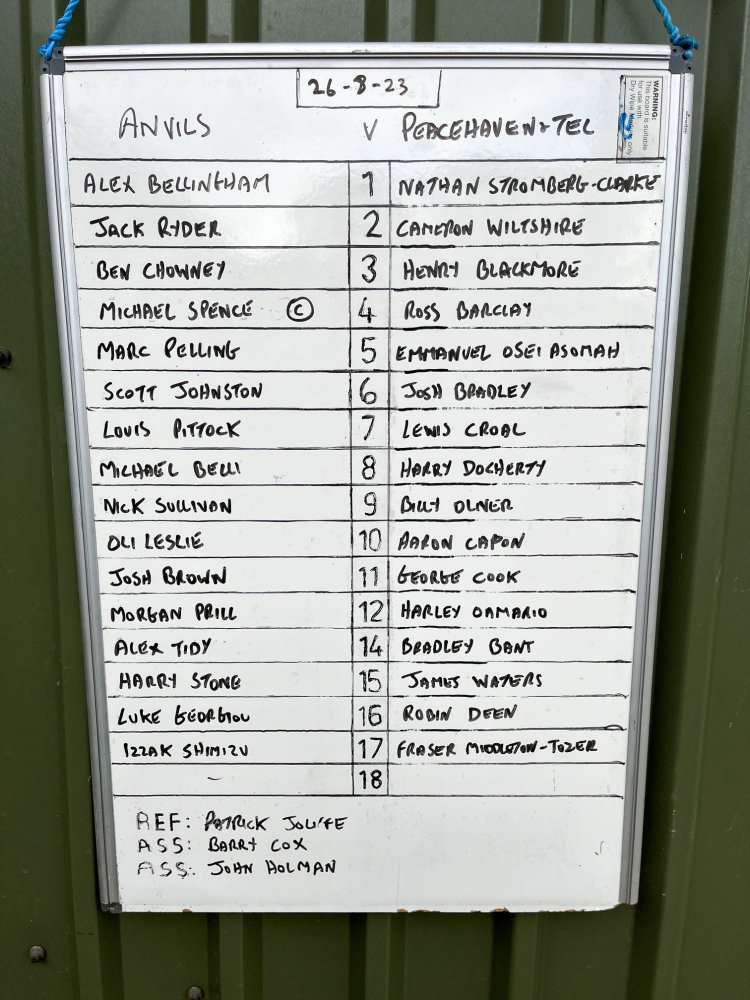 26-8-23
WARNING:
This board is suitable
for use with
Dry Wipe only
ANVILS V PEACEHAVEN & TEL
ALEX BELLINGHAM 1 NATHAN STROMBERG-CLARKE
JACK RYDER 2 CAMERON WILTSHIRE
BEN CHOWNEY 3 HENRY BLACKMORE
MICHAEL SPENCE © 4 ROSS BARCLAY
MARC PELLING 5 EMMANUEL OSEI ASOMAH
SCOTT JOHNSTON 6 JOSH BRADLEY
LOUIS PITTOCK 7 LEWIS CROAL
MICHAEL BELLI 8 HARRY DOCHERTY
NICK SULLIVAN 9 BILLY OLNER
OLI LESLIE 10 AARON CAPON
JOSH BROWN 11 GEORGE COOK
MORGAN PRILL 12 HARLEY OAMARIO
ALEX TIDY 14 BRADLEY BANT
HARRY STONE 15 JAMES WATERS
LUKE GEORGIOU 16 ROBIN DEEN
IZZAK SHIMIZU 17 FRASER MIDDLETON-TOZER
- 18
REF: PATRICK JOLIFFE
ASS: BARRY COX
ASS: JOHN HOLMAN